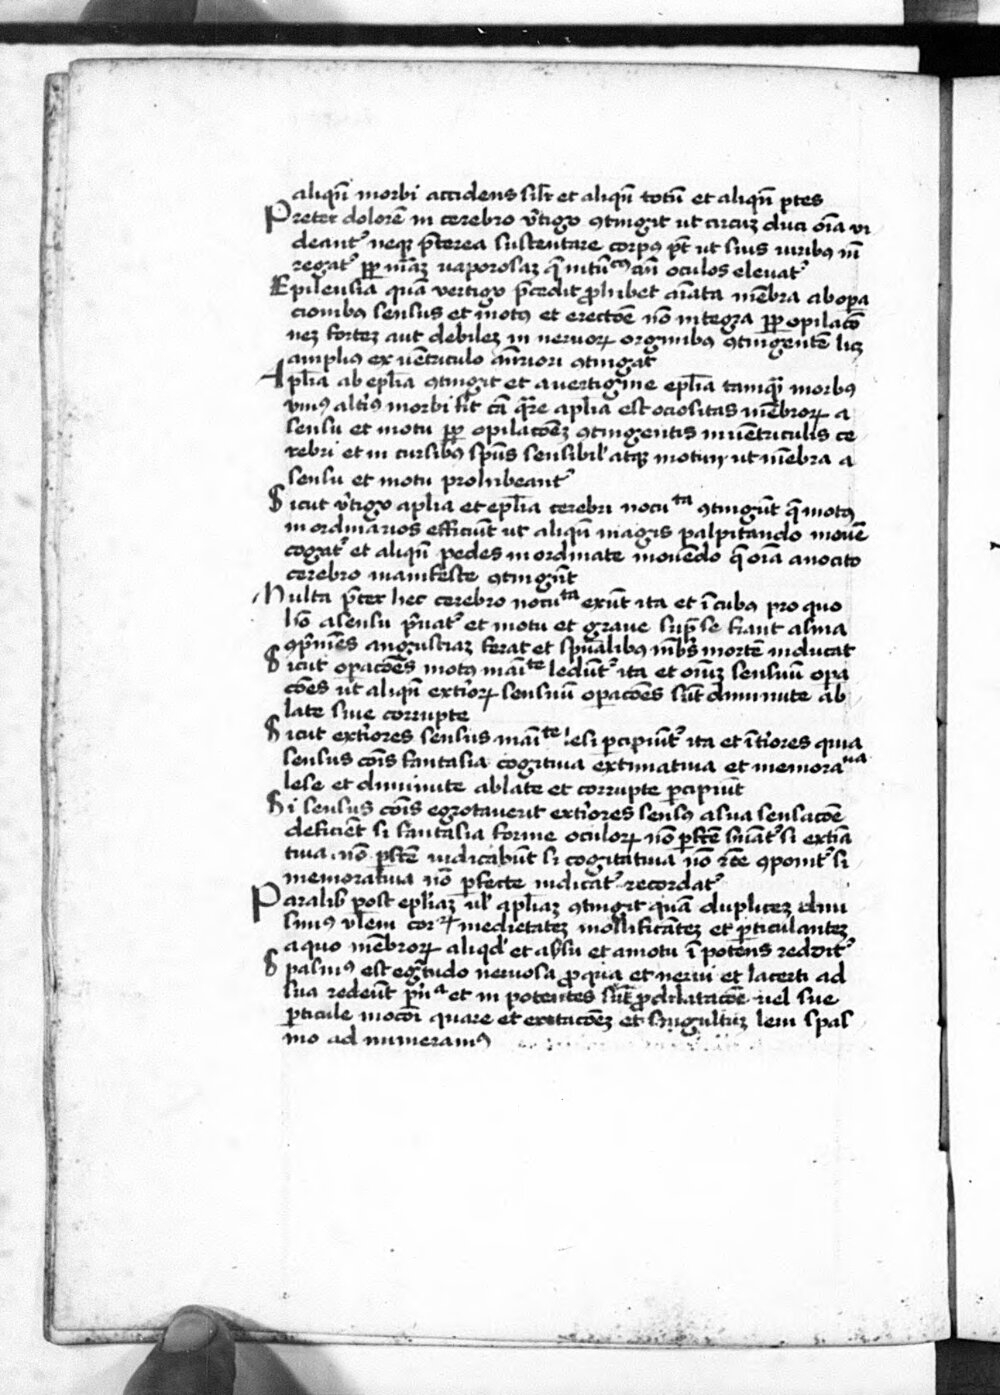 aliqn̄ morbi accidens sil̄r et aliqn̄ totū et aliqn̄ ptes
Preter dolorē in cerebro v̄tigo ꝯtingit ut circūꝫ duci oīa vi
deantᷣ neqꝫ p̄terea sustentare corpꝰ pt̄ ut suis viribꝰ in̄
regatᷣ ꝓp̄ uaporosaꝫ oculos eleuatᷣ
Epilensia quā vertigo p̄cedit ꝓhibet aīata mēbra ab opa
cionibꝰ sensus et motꝰ et erectōe nō integra ꝓp̄ opilacō
neꝫ forteꝫ aut debileꝫ in neruoꝝ originibꝰ ꝯtingentē licꝫ
amplius ex uētriculo anteriori ꝯtingat
Apl̄ia ab epl̄ia ꝯtingit et a uertigine epl̄ia tamqꝫ morbꝰ
vniꝰ altiꝰ morbi fit cā qr̄e aplīa est ociositas mēbroꝝ a
sensu et motu ꝓp̄ opilacōeꝫ ꝯtingentis in uētriculis ce
rebri et in cursibꝰ spūs sensibil' atqꝫ motiui ut mēbra a
sensu et motu prohibeantᷣ
Sicut v̄tigo aplīa et epl̄ia cerebri nocu ta ꝯtingūt q̄ motꝰ
inordinarios efficiūt ut aliqn̄ magis palpitando mouē
cogatᷣ et aliqn̄ pedes inordinate mouēdo q̄ oīa a nocito
cerebro manifeste ꝯtingūt
Multa p̄ter hec cerebro nocu ta exn̄t ita et īcubꝰ pro quo
hō a sensu p̄uatᷣ et motu et graue sup̄ se
ꝯp̄mēs angustiaꝫ ferat et spūalibꝰ mēbris mortē inducat
Sicut opacōes motꝰ māi te ledūtᷣ ita et oīūꝫ sensuū opa
cōes ut aliqn̄ extīoꝝ sensuū opacōes sūt diminute ab
late siue corrupte
Sicut extīores sensus māi te lesi ꝑcipiūtᷣ ita et ītīores quia
sensus cōis fantasia cogitiua extimatiua et memora ua
lese et diminute ablate et corrupte ꝑcipiūt
Si sensus cōis egrotauerit extīores sensꝰ a sua sensacōe
deficiēt si fantasia forme oculoꝝ nō ꝑfcē si extīa
tiua nō ꝑfcē iudicabūt si cogitatiua nō rcē ꝯponitᷣ si
memoratiua nō ꝑfecte iudicatᷣ recordatᷣ
Paralis̄ post epl̄iaꝫ ul' apl̄iaꝫ ꝯtingit quā dupliceꝫ
simꝰ vl̄em corꝝ medietateꝫ mollificāteꝫ et ꝑticulanteꝫ
a quo mēbroꝝ aliqd' et absu et a motu īpotens redditᷣ
Spasmꝰ est egritudo neruosa ꝓ qua et nerui et lacerti ad
sua redeūt pri a et inpotentes sūt ꝓ dilatacōe uel sue
ꝑticule mocōi quare et exitacōeꝫ et singultuꝫ leui spas
mo ad numeramꝰ